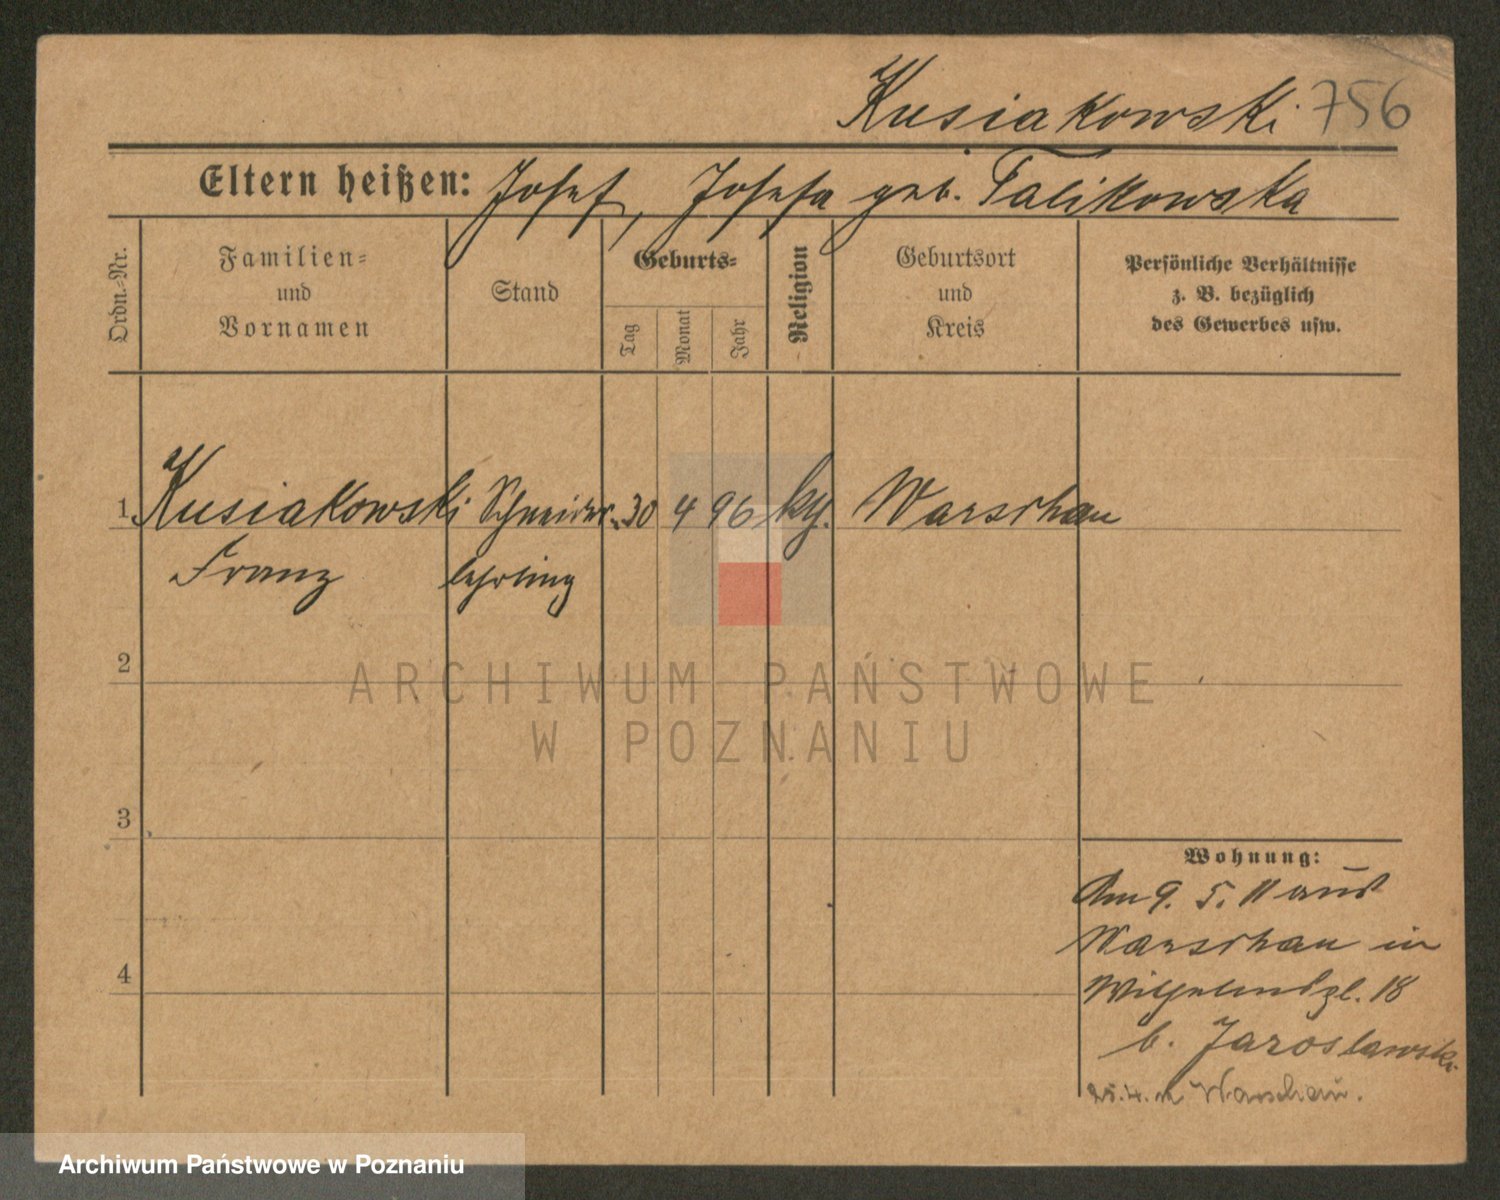 Kusiakowski 756
Eltern heißen: Josef, Josefa geb. Falikowska
Ordn.-Nr.
Familien-
und
Vornamen
Stand
Geburts-
Tag
Monat
Jahr
Religion
Geburtsort
und
Kreis
Persönliche Verhältnisse
z. B. bezüglich
des Gewerbes usw.
1 Kusiakowski Schneider- 30 4 96 kth. Warschau
Franz lehrling
2
ARCHIWUM PAŃSTWOWE
W POZNANIU
3
Wohnung:
Am 9. 5. 11 aus
Warschau in
Wilhelmspl. 18
b. Jaroslawski
4
25. 4. n. Warschau.
Archiwum Państwowe w Poznaniu